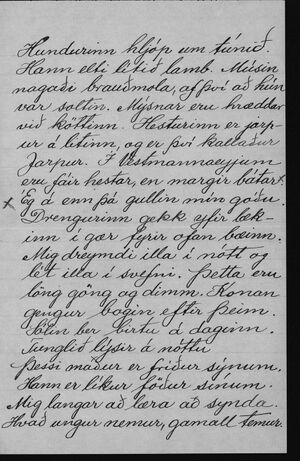 Hundurinn hljóp um túnið.
Hann elti lítið lamb. Músin
nagaði brauðmola, af því að hún
var soltin. Mýsnar eru hræddar
við köttinn. Hesturinn er jarp-
ur á litinn, og er því kallaður
Jarpur. Í Vestmannaeyjum
eru fáir hestar, en margir bátar x.
x Eg á enn þá gullin mín góðu.
Drengurinn gekk eyfir læk-
inn í gær fyrir ofan bæinn.
Mig dreymdi illa í nótt og
lét illa í svefni. Þetta eru
löng göng og dimm. Konan
gengur bogin eftir þeim.
Sólin ber birtu á daginn.
Tunglið lýsir á nóttu
Þessi maður er fríður sýnum.
Hann er líkur föður sínum.
Mig langar að læra að synda.
Hvað ungur nemur, gamall temur.